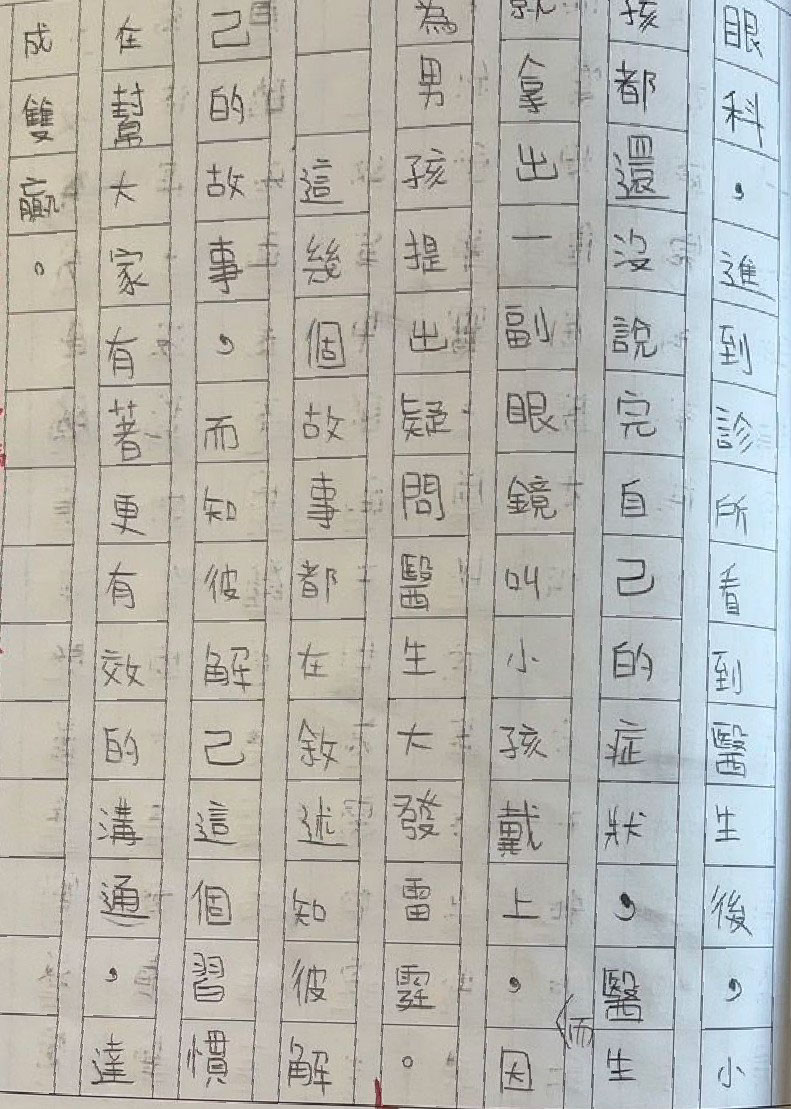 眼科，進到診所看到醫生後，小
孩都還沒說完自己的症狀，醫生
就拿出一副眼鏡叫小孩戴上，而因
為男孩提出疑問醫生大發雷霆。
這幾個故事都在敘述知彼解
己的故事，而知彼解己這個習慣
在幫大家有著更有效的溝通，達
成雙贏。